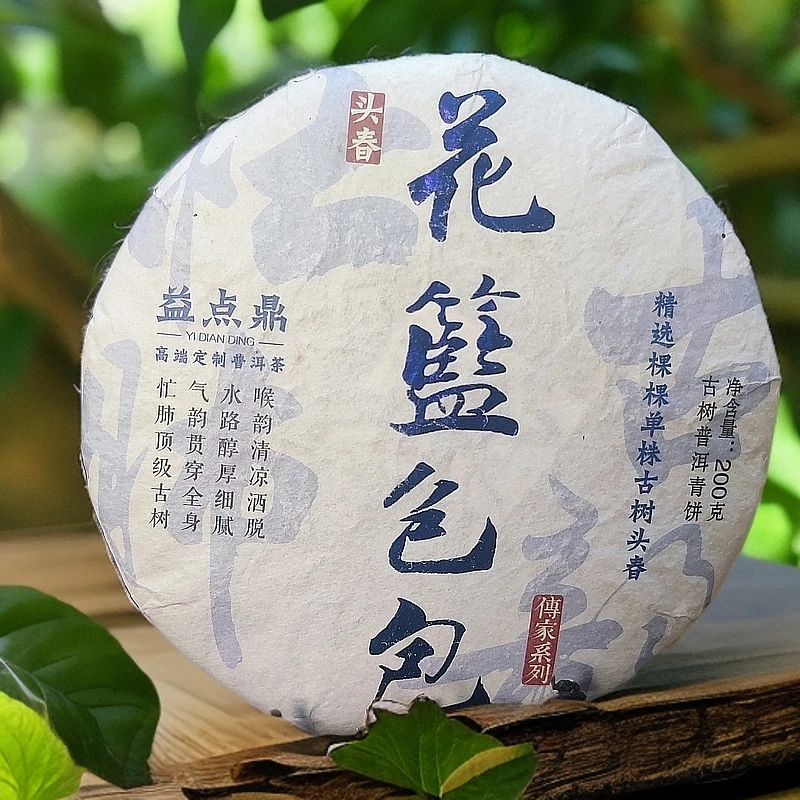 头春
花籃包包
傳家系列
益点鼎
YI DIAN DING
高端定制普洱茶
喉韵清凉洒脱
水路醇厚细腻
气韵贯穿全身
忙肺顶级古树
精选棵棵单株古树头春
净含量：200克
古树普洱青饼